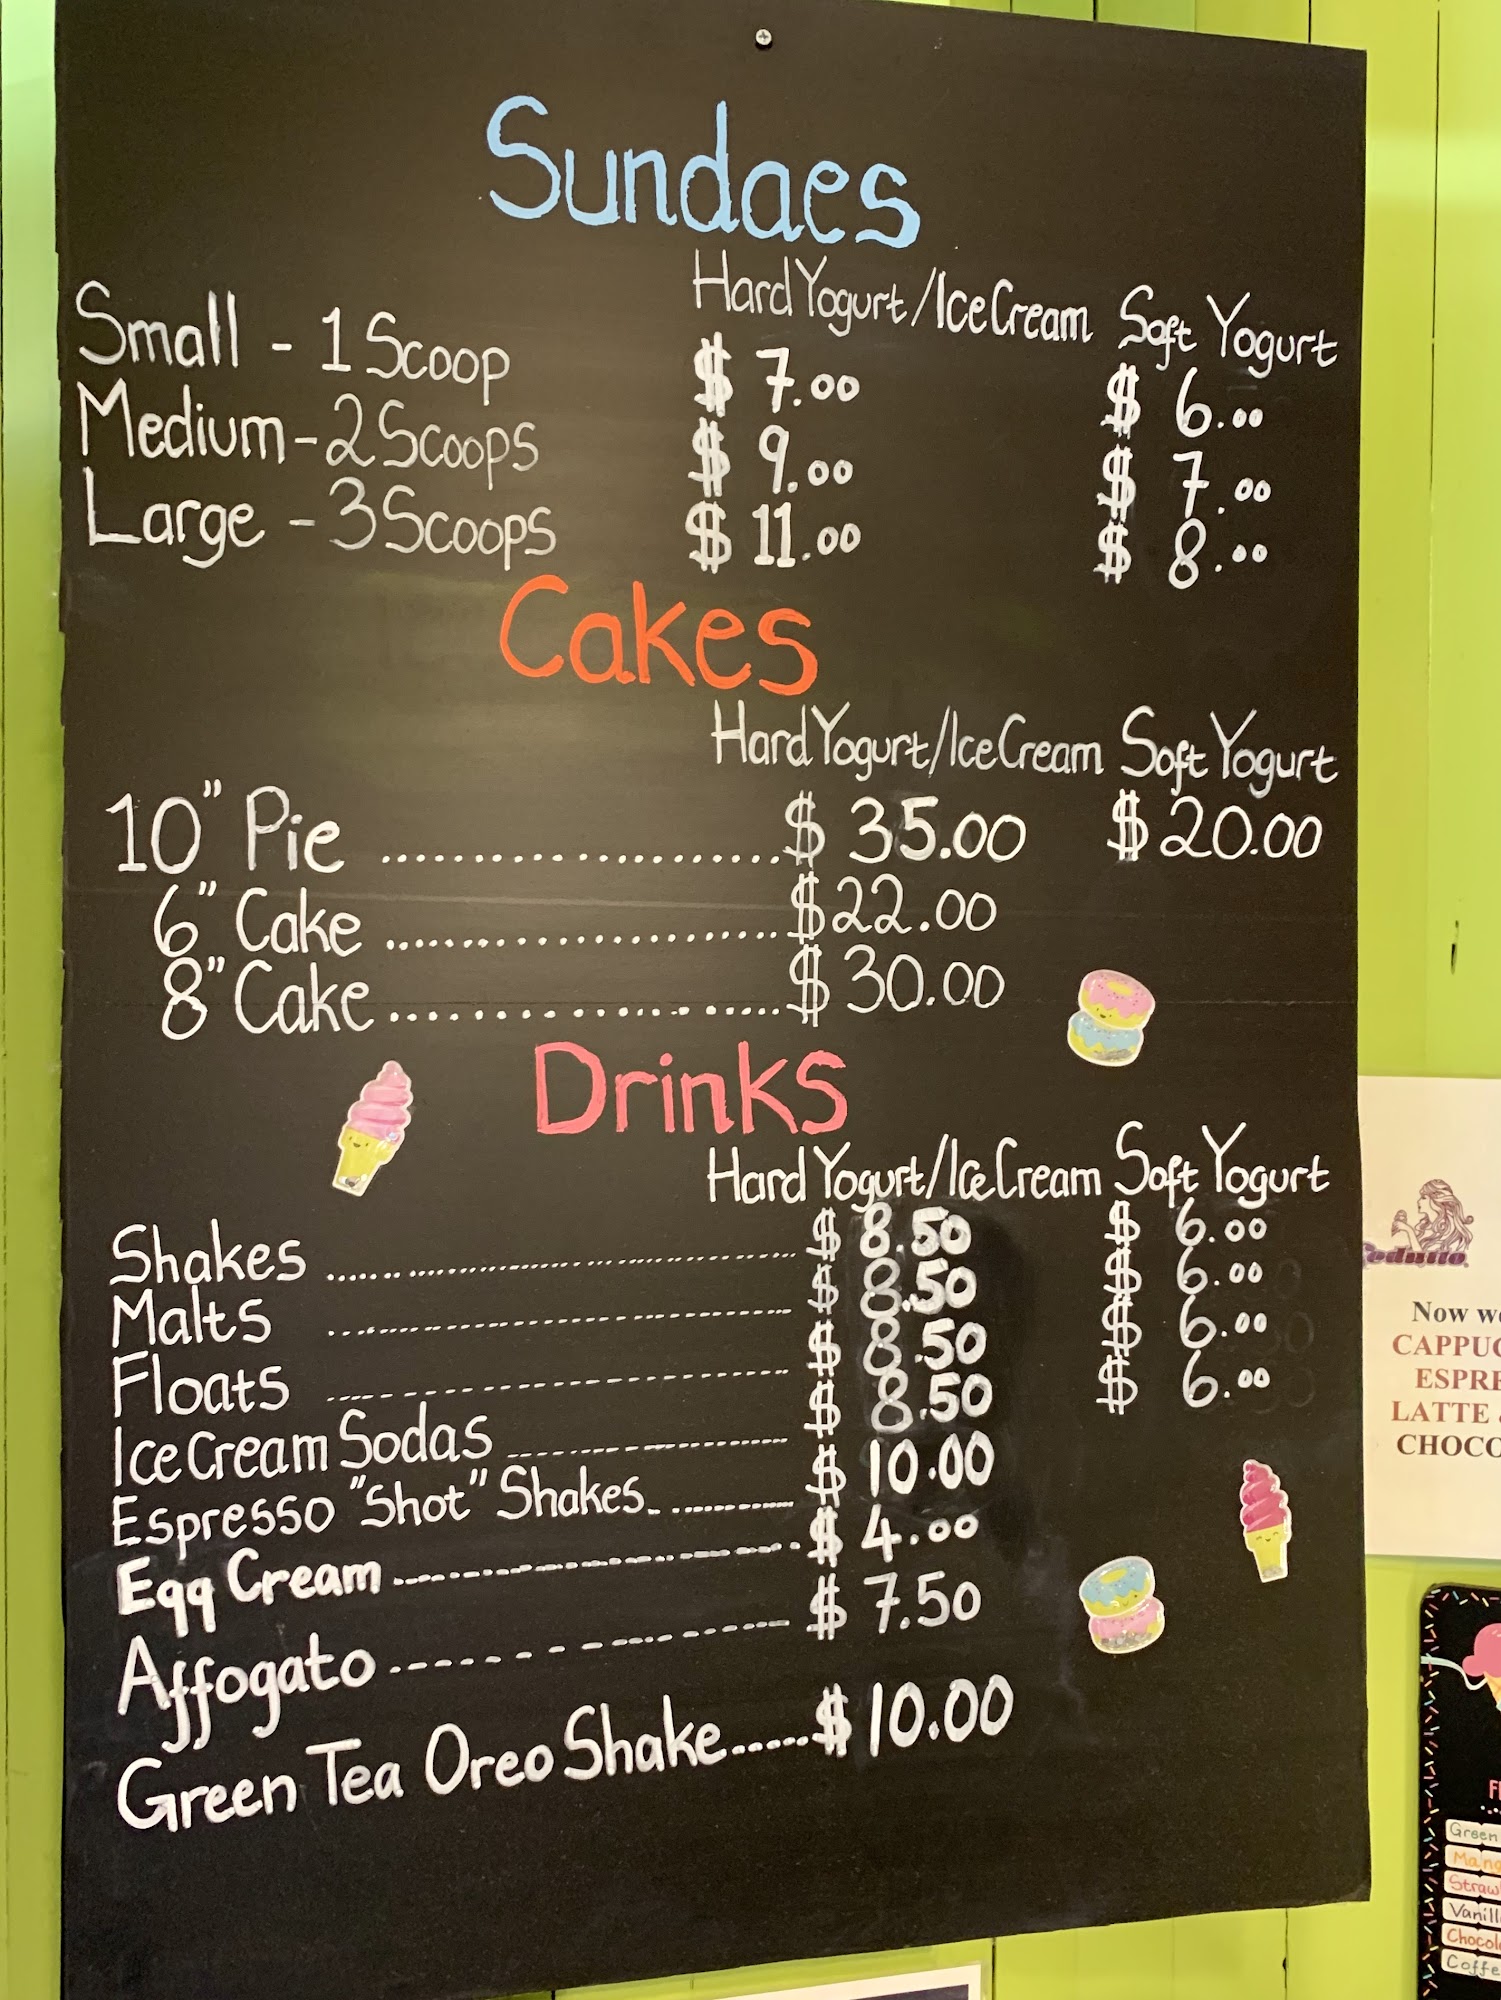 Sundaes
Hard Yogurt/Ice Cream Soft Yogurt
Small - 1 Scoop $ 7.00 $ 6.00
Medium - 2 Scoops $ 9.00 $ 7.00
Large - 3 Scoops $ 11.00 $ 8.00
Cakes
Hard Yogurt/Ice Cream Soft Yogurt
10" Pie ........................ $ 35.00 $ 20.00
6" Cake ........................ $ 22.00
8" Cake ........................ $ 30.00
Drinks
Hard Yogurt/Ice Cream Soft Yogurt
Shakes ........................ $ 8.50 $ 6.00
Malts ........................ $ 8.50 $ 6.00
Floats ........................ $ 8.50 $ 6.00
Ice Cream Sodas ........................ $ 8.50 $ 6.00
Espresso "Shot" Shakes ............ $ 10.00
Egg Cream ........................ $ 4.00
Affogato ........................ $ 7.50
Green Tea Oreo Shake...... $ 10.00
Now
LATTE
Green